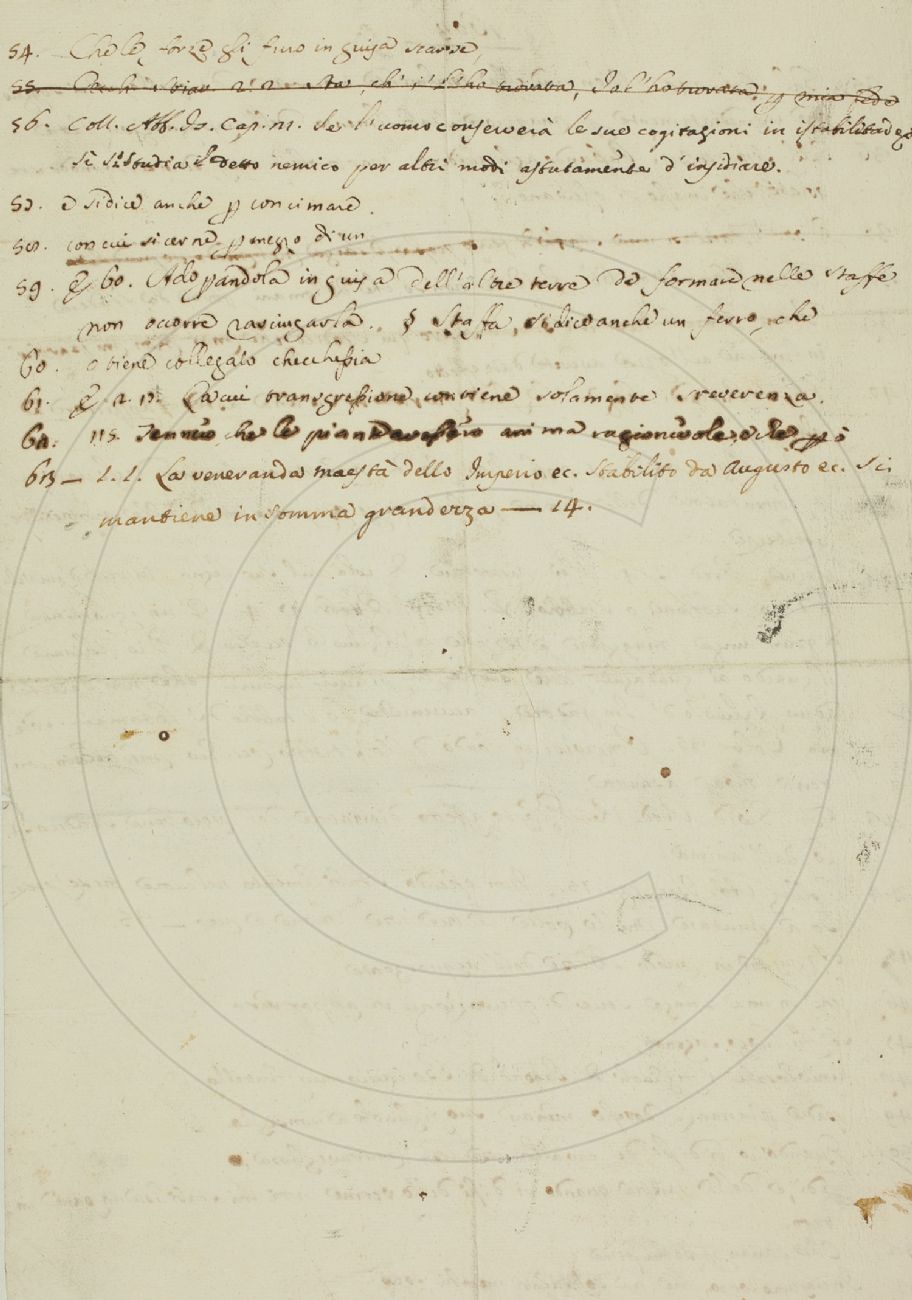 54. Che le forze gli furo in guisa scarse,
55. l'ho trovata, Io l'ho trovata p mia fede
56. Coll. Abb. Is. Cap. 11. Se l'uomo conserverà le sue cogitazioni in istabilitade
si si studia 'l detto nemico per altri modi astutamente d'insidiare.
57. e si dice anche p concimare.
58. con cui si cerne p mezzo di un
59. E 60. Adoprandola in guisa dell'altre terre da formare nelle staffe
non occorre rasciugarla. § Staffa, si dice anche un ferro, che
60. o tiene collegato checchessia
61. E 2. 17. La cui transgressione contiene solamente irreverenza.
62. 115. Tennero che le piante avessero anima ragionevole, e che p
63 — 1. 1. La veneranda maestà dello Imperio ec. stabilito da Augusto ec. si
mantiene in somma grandezza — 14.